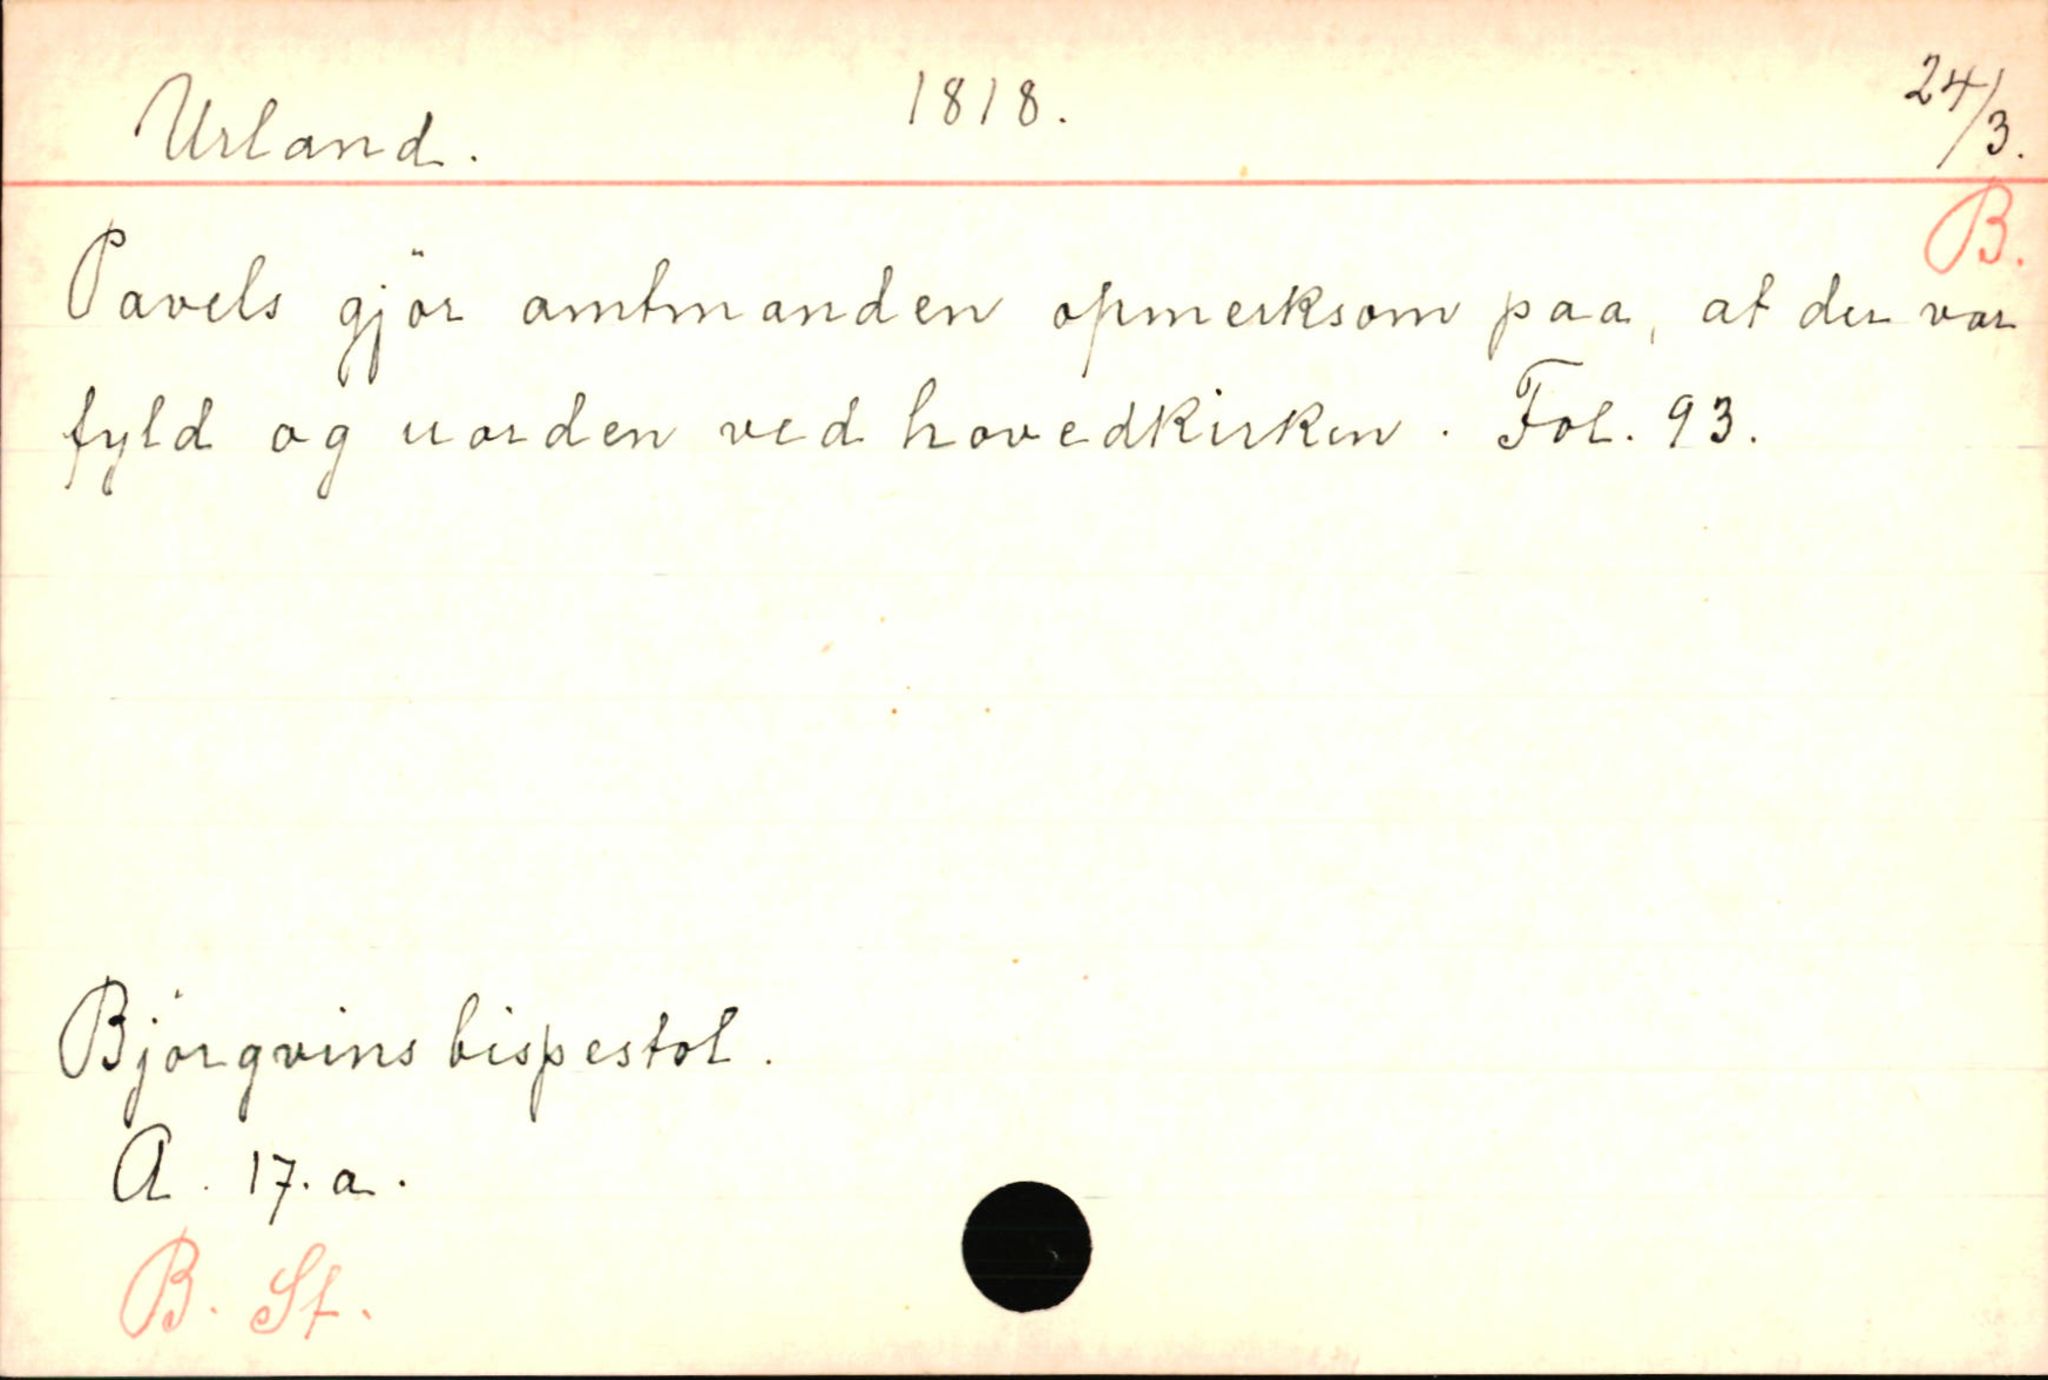 Urland. 1818. 24/3.
B.
Pavels gjör amtmanden opmerksom paa, at der var
fyld og uorden ved hovedkirken. Fol. 93.
Björgvins bispestol.
A. 17. a.
B. St.